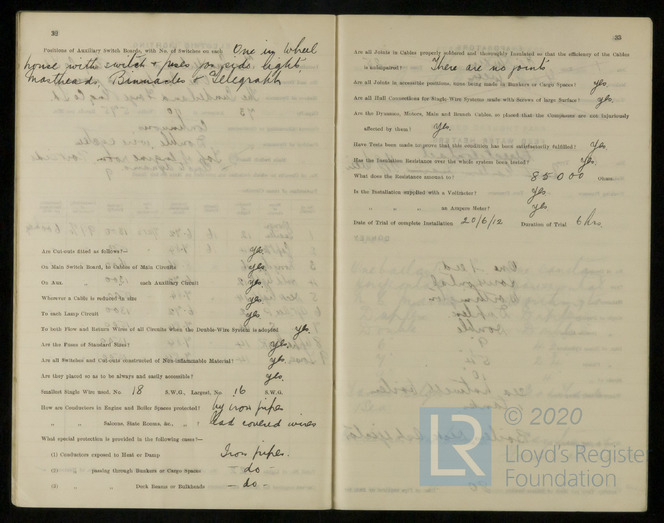 32
Positions of Auxiliary Switch Boards, with No. of Switches on each One in Wheel
house with switch & fuses for side light
Masthead, Binnacles & Telegraph
Are Cut-outs fitted as follows?—
Yes
On Main Switch Board, to Cables of Main Circuits Yes
On Aux. " " each Auxiliary Circuit Yes
Wherever a Cable is reduced in size Yes
To each Lamp Circuit Yes
To both Flow and Return Wires of all Circuits when the Double-Wire System is adopted Yes
Are the Fuses of Standard Sizes? Yes
Are all Switches and Cut-outs constructed of Non-inflammable Material? Yes
Are they placed so as to be always and easily accessible? Yes
Smallest Single Wire used, No. 18 S.W.G., Largest, No. 16 S.W.G.
How are Conductors in Engine and Boiler Spaces protected? by iron pipes
" " Saloons, State Rooms, &c., " ? Lead covered wires
What special protection is provided in the following cases?—
(1) Conductors exposed to Heat or Damp Iron pipes.
(2) " passing through Bunkers or Cargo Spaces - do -
(3) " " Deck Beams or Bulkheads - do -
33
Are all Joints in Cables properly soldered and thoroughly insulated so that the efficiency of the Cables
is unimpaired? There are no joints
Are all Joints in accessible positions, none being made in Bunkers or Cargo Spaces? Yes.
Are all Hull Connections for Single Wire Systems made with Screws of large Surface? Yes.
Are the Dynamos, Motors, Main and Branch Cables, so placed that the Compasses are not injuriously
affected by them? Yes.
Have Tests been made to prove that this condition has been satisfactorily fulfilled? Yes
Has the Insulation Resistance over the whole system been tested? Yes.
What does the Resistance amount to? 85000 Ohms.
Is the Installation supplied with a Voltmeter? Yes
" " " an Ampere Meter? Yes
Date of Trial of complete Installation 20/6/12 Duration of Trial 6 hrs
LR
© 2020
Lloyd's Register
Foundation